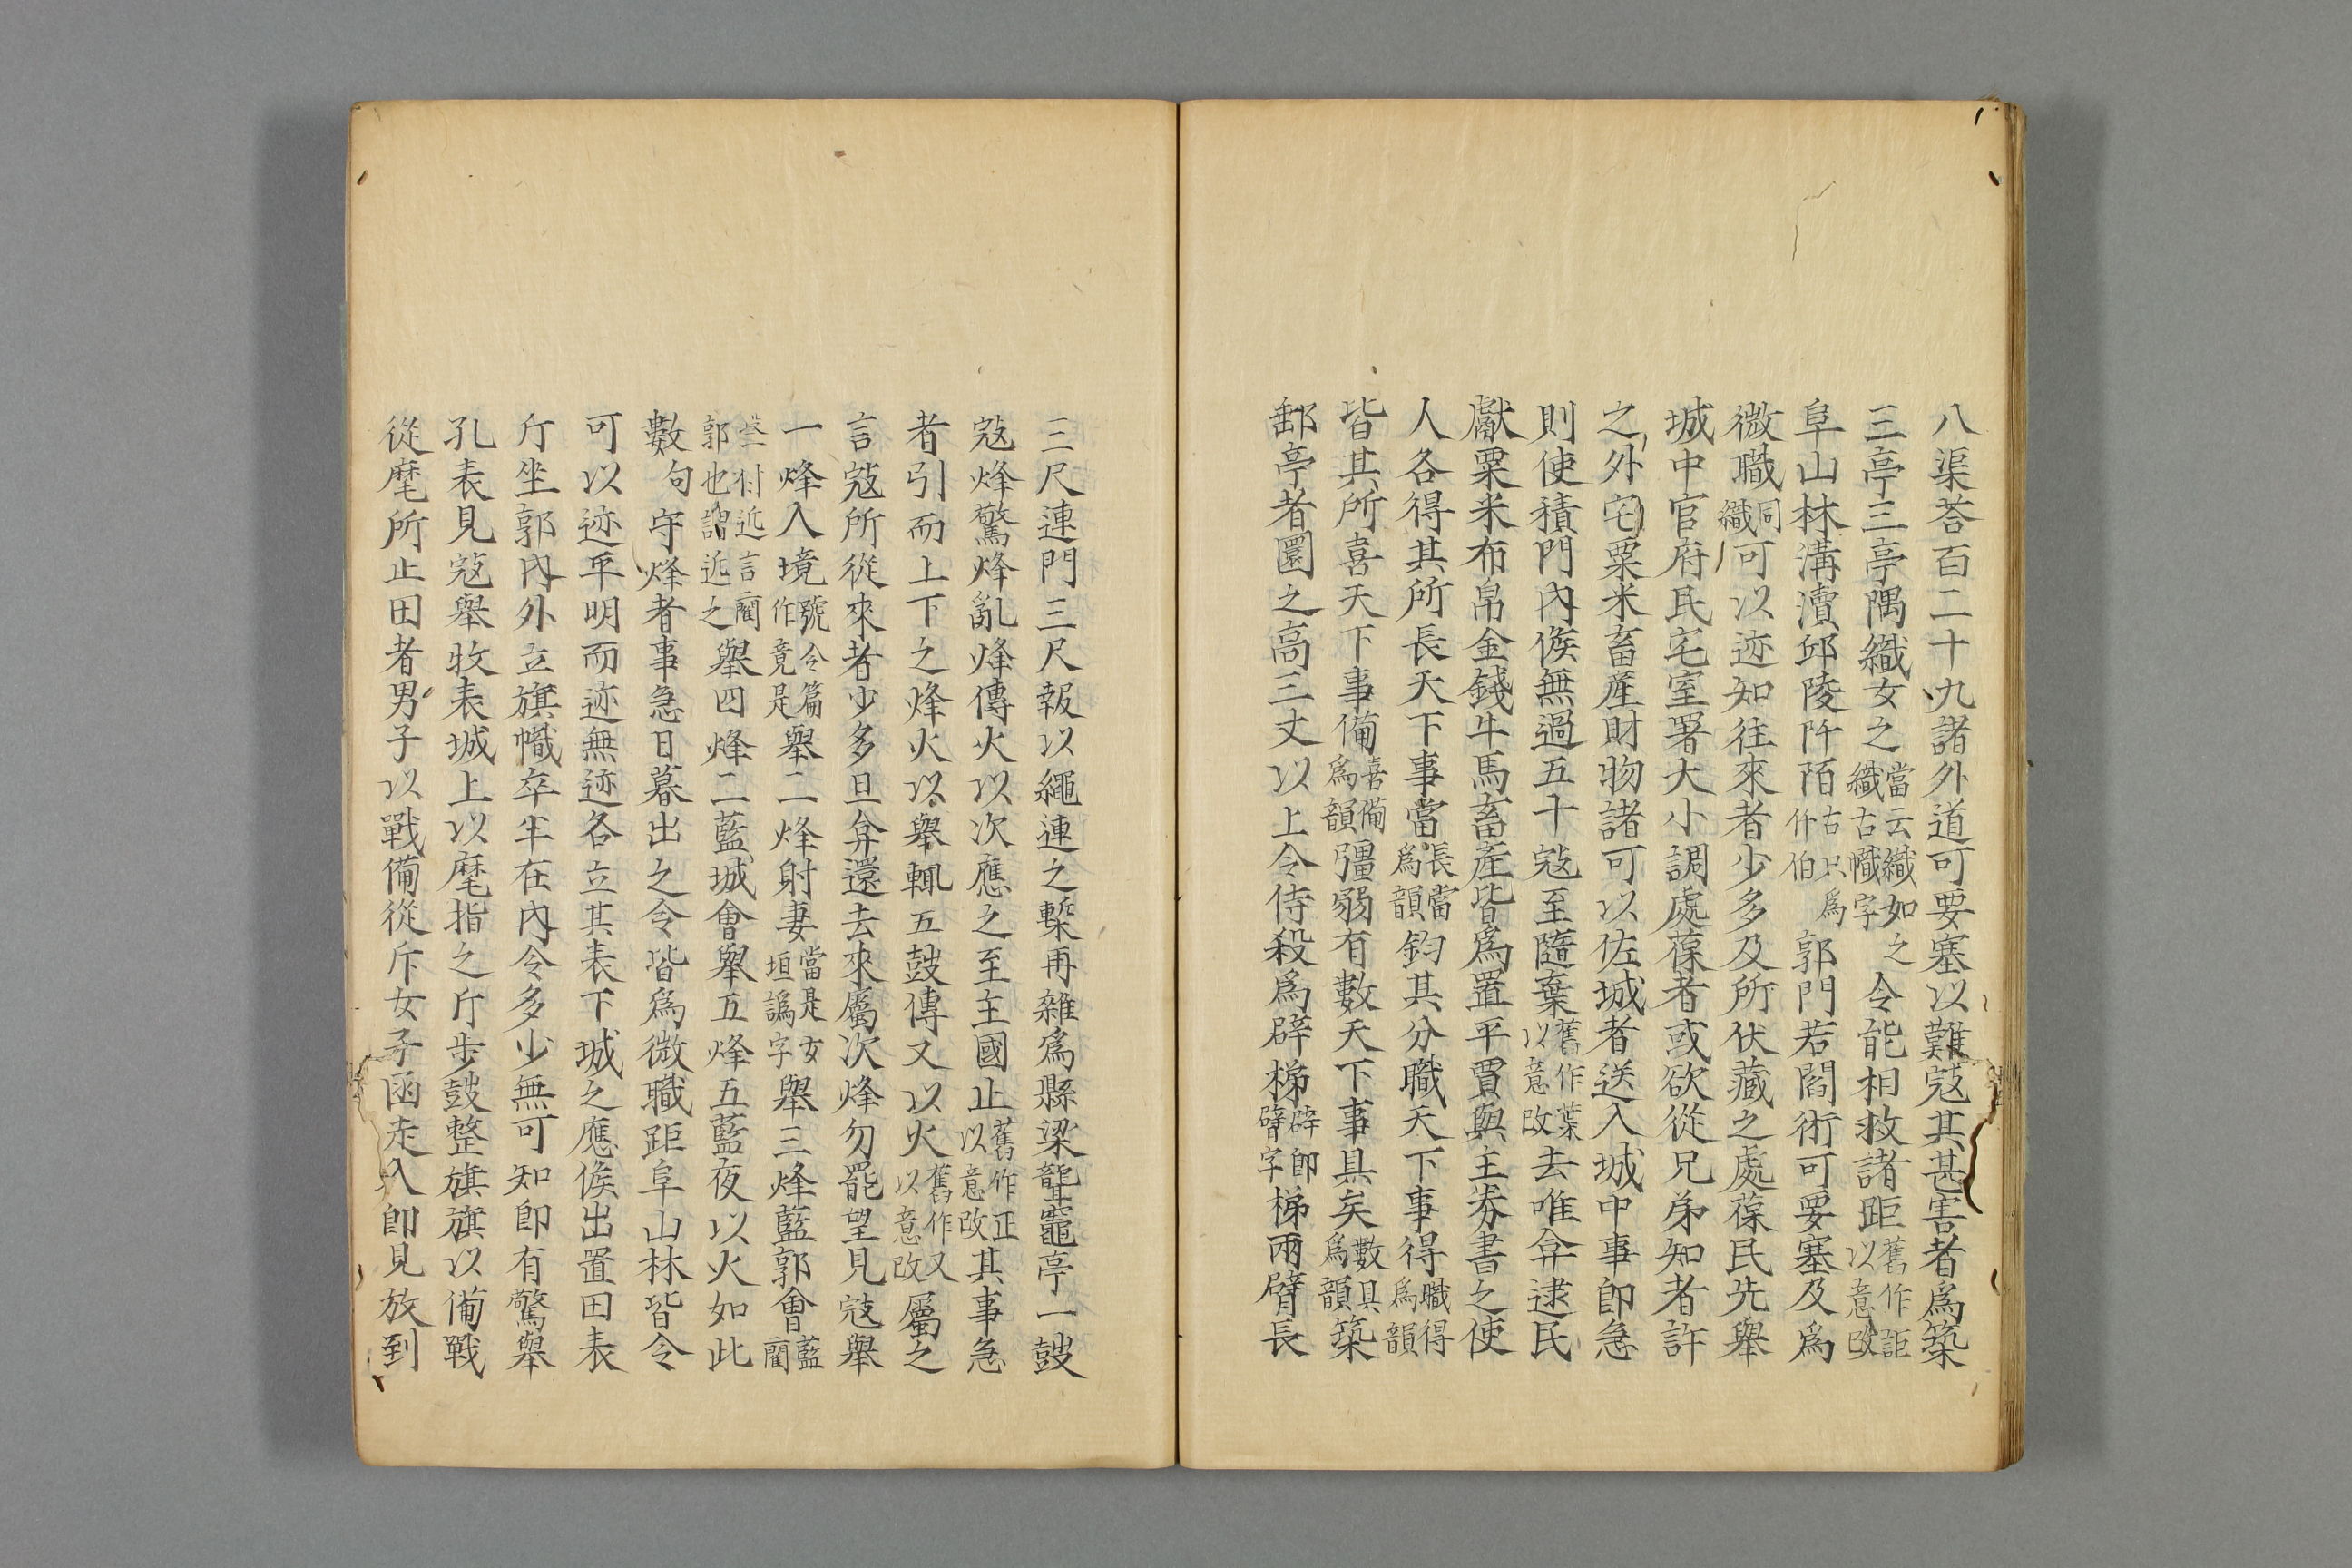 八渠荅百二十九諸外道可要塞以難寇其甚害者爲築
三亭三亭隅織女之當云織如之織古幟字令能相救諸距舊作詎以意改
阜山林溝瀆邱陵阡陌古只爲仟伯郭門若閻術可要塞及爲
微職同織可以迹知往來者少多及所伏藏之處葆民先舉
城中官府民宅室署大小調處葆者或欲從兄弟知者許
之外宅粟米畜產財物諸可以佐城者送入城中事卽急
則使積門內候無過五十寇至隨棄舊作葉以意改去唯弇逮民
獻粟米布帛金錢牛馬畜產皆爲置平賈與主券書之使
人各得其所長天下事當長當爲韻鈞其分職天下事得職得爲韻
皆其所喜天下事備喜備爲韻彊弱有數天下事具矣數具爲韻築
郵亭者圜之高三丈以上令侍殺爲辟梯辟卽臂字梯兩臂長
三尺連門三尺報以繩連之槧再雜爲縣梁聾竈亭一鼓
寇烽驚烽亂烽傳火以次應之至主國止舊作正以意改其事急
者引而上下之烽火以舉輒五鼓傳又以火舊作又以意改屬之
言寇所從來者少多旦弇還去來屬次烽勿罷望見寇舉
一烽入境號令篇作竟是舉二烽射妻當是女垣譌字舉三烽藍郭會藍藺
付近言藺郭也謂近之舉四烽二藍城會舉五烽五藍夜以火如此
數句守烽者事急日暮出之令皆爲微職距阜山林皆令
可以迹平明而迹無迹各立其表下城之應候出置田表
斤坐郭內外立旗幟卒半在內令多少無可知卽有驚舉
孔表見寇舉牧表城上以麾指之斤步鼓整旗旗以備戰
從麾所止田者男子以戰備從斥女子函走入卽見放到